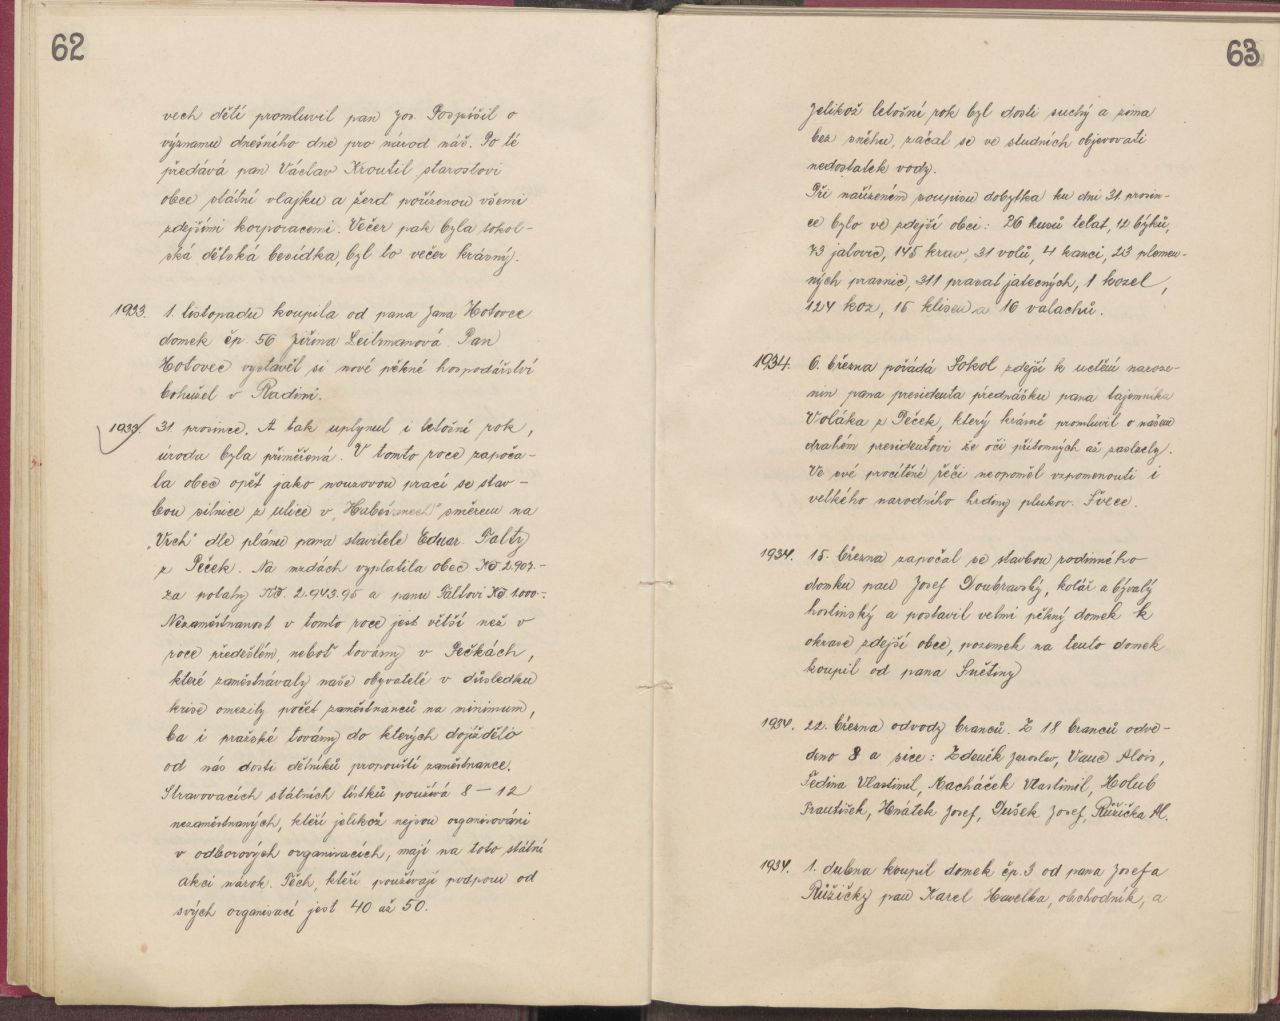 62
vech dětí promluvil pan Jos. Pospíšil o
významu dnešního dne pro národ náš. Po té
předává pan Václav Kroutil starostovi
obce státní vlajku a žerď pořízenou všemi
zdejšími korporacemi. Večer pak byla sokol-
ská dětská besídka, byl to večer krásný.
1933. 1. listopadu koupila od pana Jana Hotovce
domek čp. 56 Jiřina Leitrmanová. Pan
Hotovec vystavěl si nové pěkné hospodářství
bohužel v Radimi.
1933. 31. prosince. A tak uplynul i letošní rok,
úroda byla přiměřená. V tomto roce započa-
la obec opět jako nouzovou prací se stav-
bou silnice z ulice v směrem na
„Vrch" dle plánu pana stavitele Eduar. Palty
z Peček. Na mzdách vyplatila obec Kč 2.907.-
za potahy Kč. 2.943.95 a panu Paltovi Kč 1.000-.
Nezaměstnanost v tomto roce jest větší než v
roce předešlém, neboť továrny v Pečkách,
které zaměstnávaly naše obyvatelé v důsledku
krise omezily počet zaměstnanců na minimum,
ba i pražské továrny do kterých dojíždělo
od nás dosti dělníků propouští zaměstnance.
Stravovacích státních lístků používá 8 – 12
nezaměstnaných, kteří jelikož nejsou organisováni
v odborových organisacích, mají na toto státní
akci nárok. Těch, kteří používají podporu od
svých organisací jest 40 až 50.
63
Jelikož letošní rok byl dosti suchý a zima
bez sněhu, začal se ve studních objevovati
nedostatek vody.
Při nařízeném soupisu dobytka ku dni 31. prosin-
ce bylo ve zdejší obci: 26 kusů telat, 12 býků,
73 jalovic, 145 krav, 31 volů, 4 kanci, 23 plemen-
ných prasnic, 311 prasat jatečných, 1 kozel,
124 koz, 15 klisen a 16 valachů.
1934. 6. března pořádá Sokol zdejší k uctění naroze-
nin pana presidenta přednášku pana tajemníka
Voláka z Peček, který krásně promluvil o našem
drahém presidentovi že oči přítomných až zaslzely.
Ve své procítěné řeči neopoměl vzpomenouti i
velkého narodního hrdiny plukov. Švece.
1934. 15. března započal se stavbou rodinného
domku pan Josef Doubravský, kolář a bývalý
hostinský a postavil velmi pěkný domek k
okrase zdejší obce, pozemek na tento domek
koupil od pana Snětiny
1934. 22. března odvody branců. Z 18 branců odve-
deno 8 a sice: Zdeněk Jaroslav, Vanc Alois,
Fedina Vlastimil, Macháček Vlastimil, Holub
František, Hnátek Josef, Dušek Josef, Růžička Al.
1934. 1. dubna koupil domek čp. 3 od pana Josefa
Růžičky pan Karel Havelka, obchodník, a